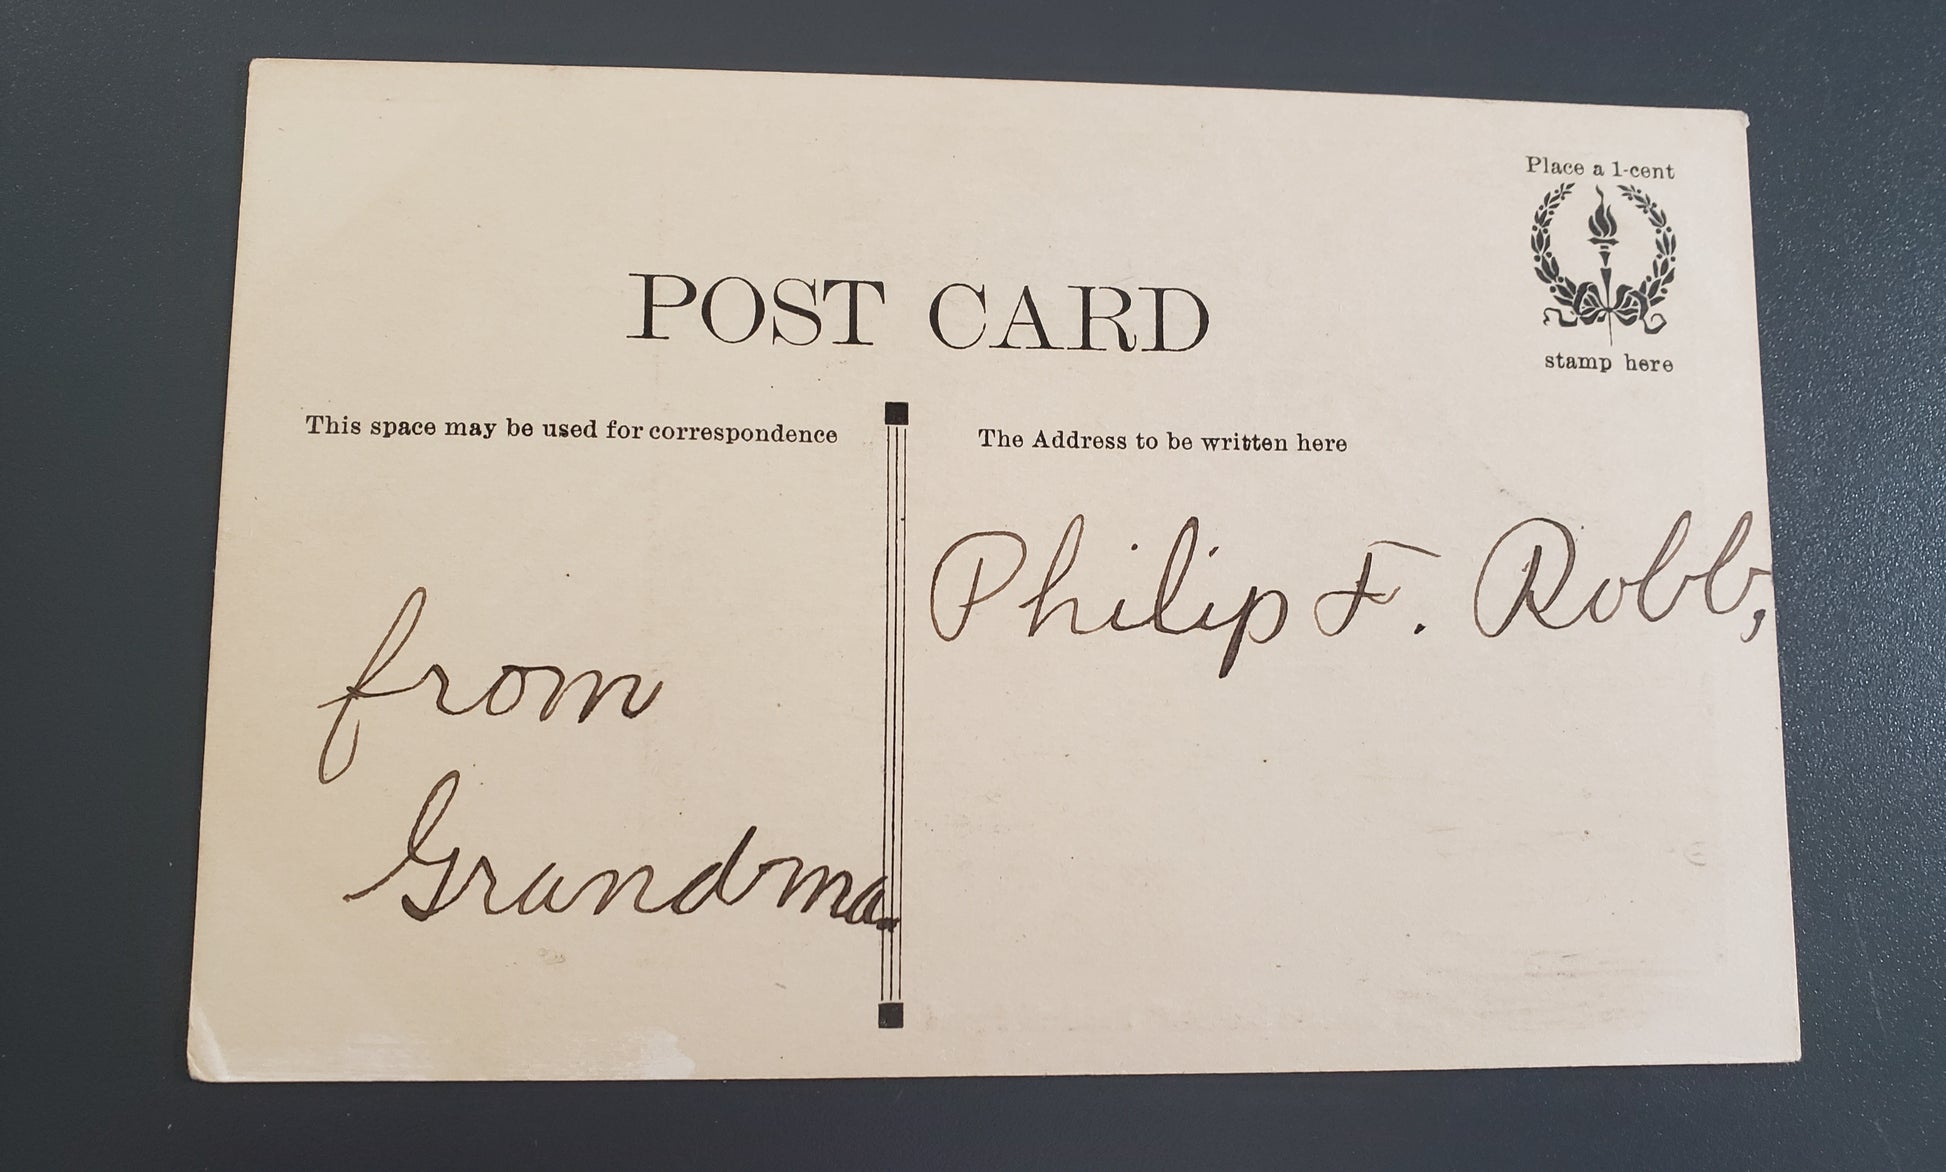 Place a 1-cent
stamp here
POST CARD
This space may be used for correspondence
The Address to be written here
from
Grandma.
Philip F. Robb,